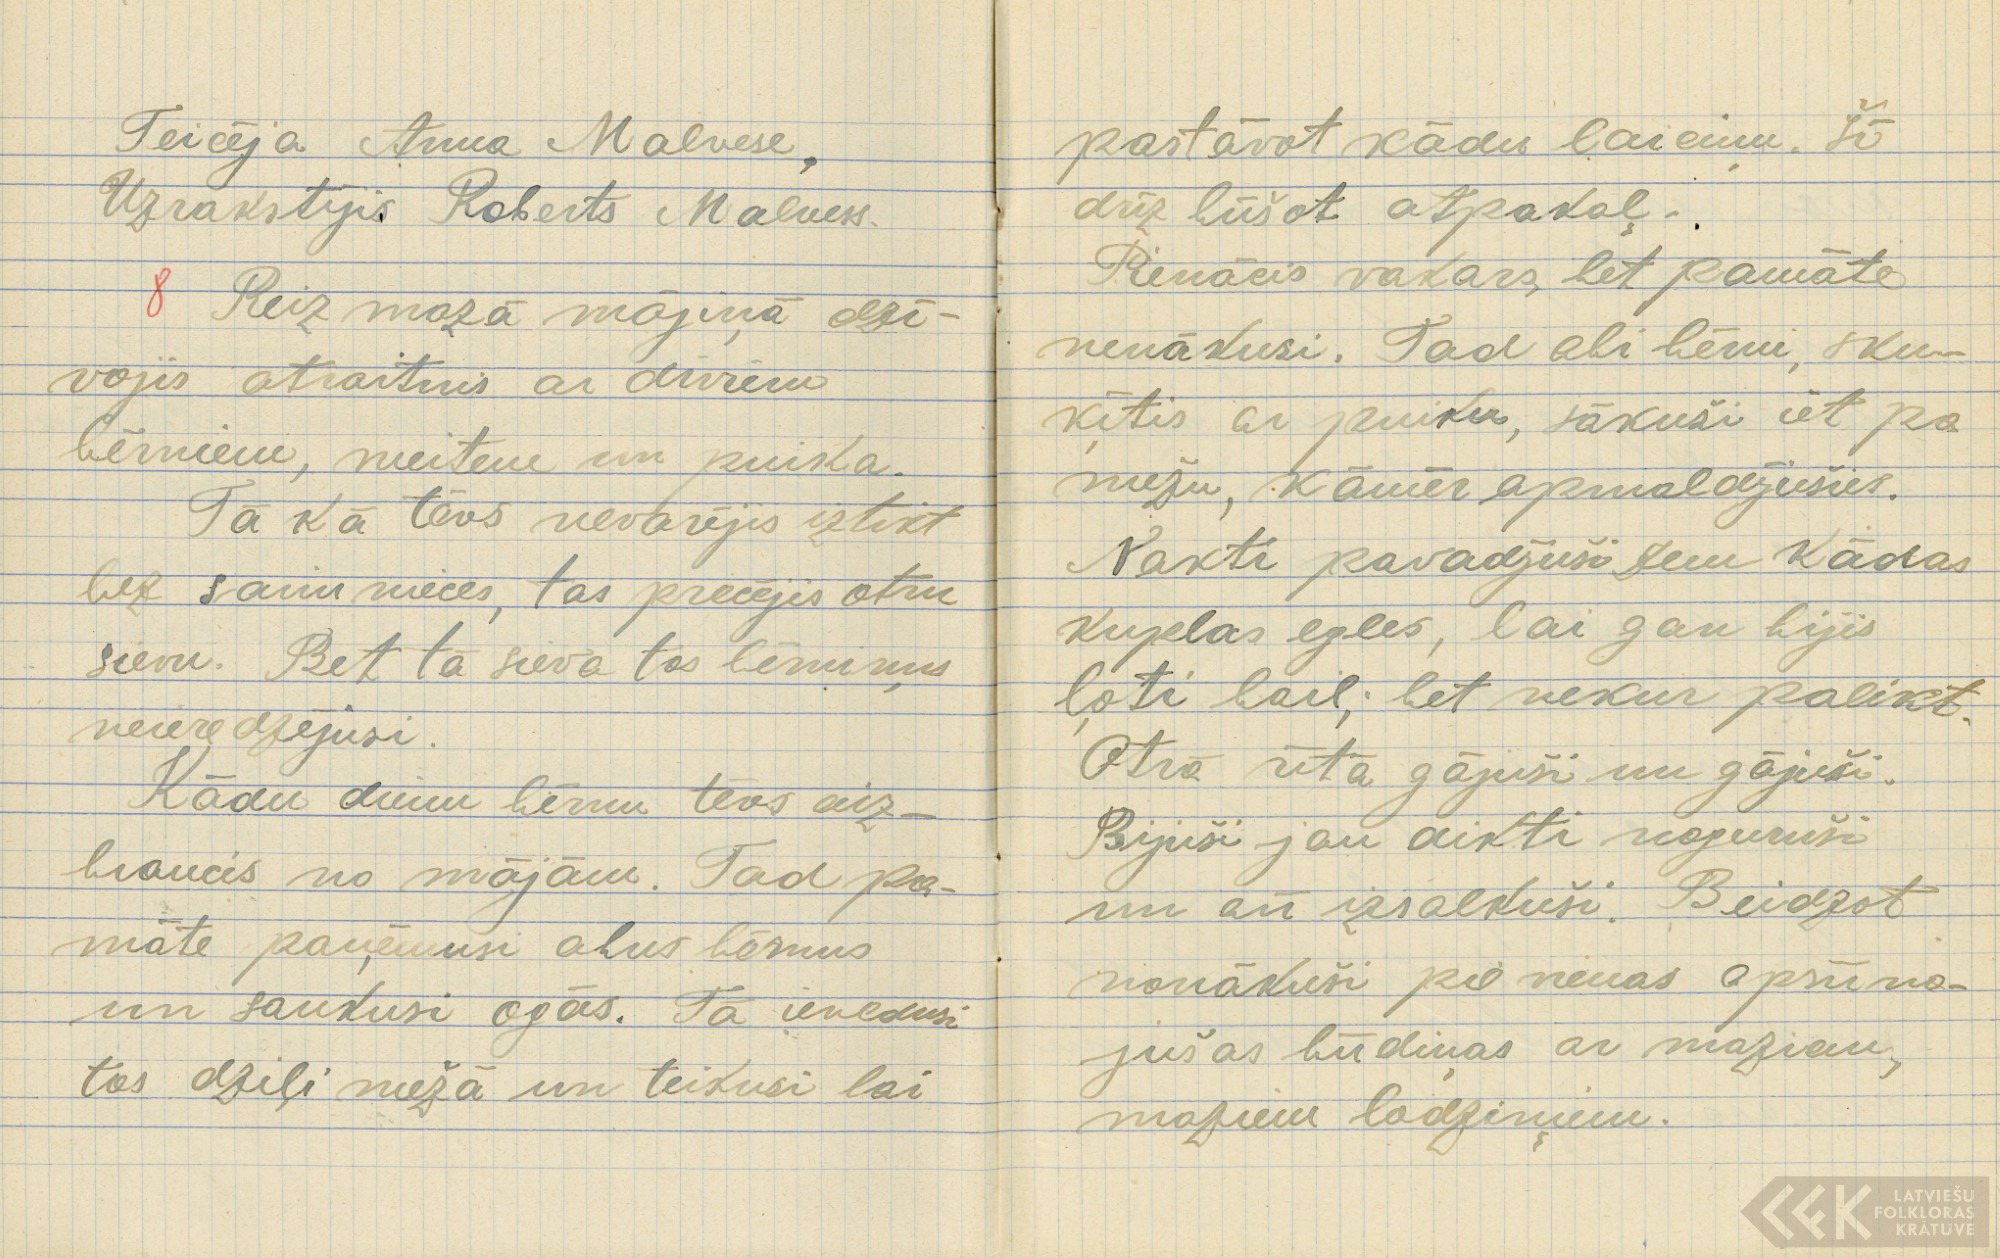 Teicēja Anna Malvese,
Uzrakstījis Roberts Malvess.
8 Reiz mazā mājiņā dzī-
vojis atraitnis ar diviem
bērniem, meitene un puika.
Tā kā tēvs nevarējis iztikt
bez saimnieces, tas precējis otru
sievu. Bet tā sieva tos bērniņus
neieredzējusi.
Kādu dienu bērnu tēvs aiz-
braucis no mājām. Tad pa-
māte paņēmusi abus bērnus
un saukusi ogās. Tā ievedusi
tos dziļi mežā un teikusi lai
pastāvot kādu laiciņu. Šī
drīz būšot atpakaļ.
Pienācis vakars, bet pamāte
nenākusi. Tad abi bērni, sku-
ķītis ar puiku, sākuši iet pa
mežu, kāmēr apmaldījušies.
Nakti pavadījuši zem kādas
kuplas egles, lai gan bijis
ļoti bail; bet nekur palikt.
Otrā rītā gājuši un gājuši.
Bijuši jau aikti noguruši
un arī izsalkuši. Beidzot
nonākuši pie vienas apsūno-
jušas būdiņas ar maziem,
maziem lodziņiem.
LATVIEŠU
FOLKLORAS
KRĀTUVE